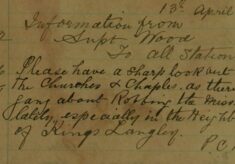 13th April
Information from
Supt Wood
To all Station
Please have a sharp look out
the Churches & Chaples. as there
gang about Robbing the
lately, especially in the Neighb
of Kings Langley.
P.C.